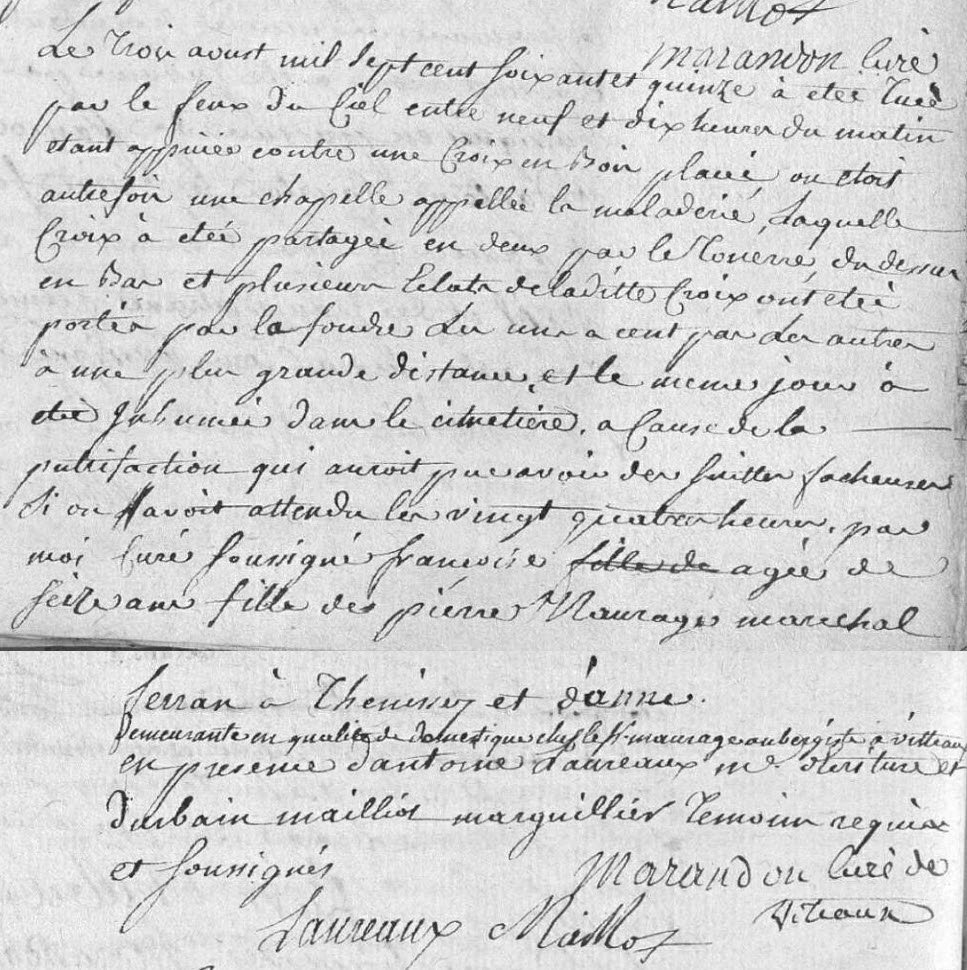 Marandon Curé
Le Troix aoust mil Sept cent Soixantet quinze à eteé Tueé
par le feux du Ciel entre neuf et dix heures du matin
etant appuieé contre une Croix en Bois placeé ou etoit
autrefois une chapelle appelleé la maladerie, Laquelle
Croix à eteé partageé en deux par le Tonerre, du dessus
en Bas et plusieurs Eclats de laditte Croix ont eteé
portés par la foudre Les uns a cent pas Les autres
a une plus grande distance, et le meme jour à
eteé Inhumeé dans le cimetière, a Cause de la
putrifaction qui auroit pue avoir des suittes facheuses
Si on avoit attendu les vingt quatres heures, par
moi Curé Soussigné francoise fille de ageé de
Seize ans fille de pierre Maurage marechal
ferran à Thenissey et d'anne
Demeurante en qualité de domestique chés le Sr maurage aubergiste à vitteaux
en presence d'antoine Laureaux me. et
D'urbain maillot marguillier Temoins requis
et Soussignés
Marandon Curé de
Viteaux
Laureaux Maillot